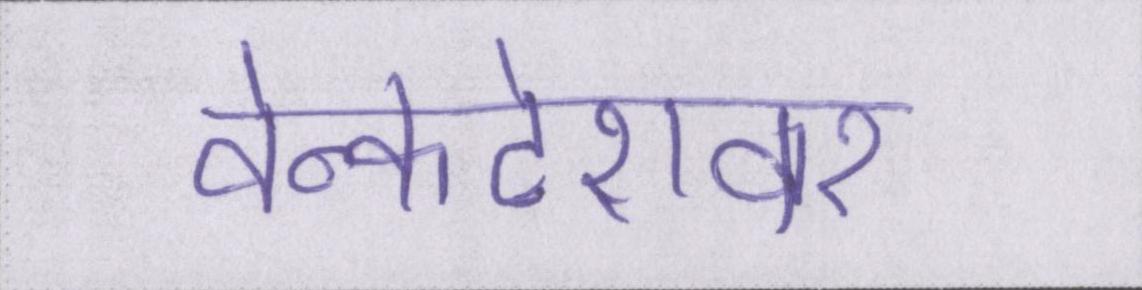 वेन्कटेशवर